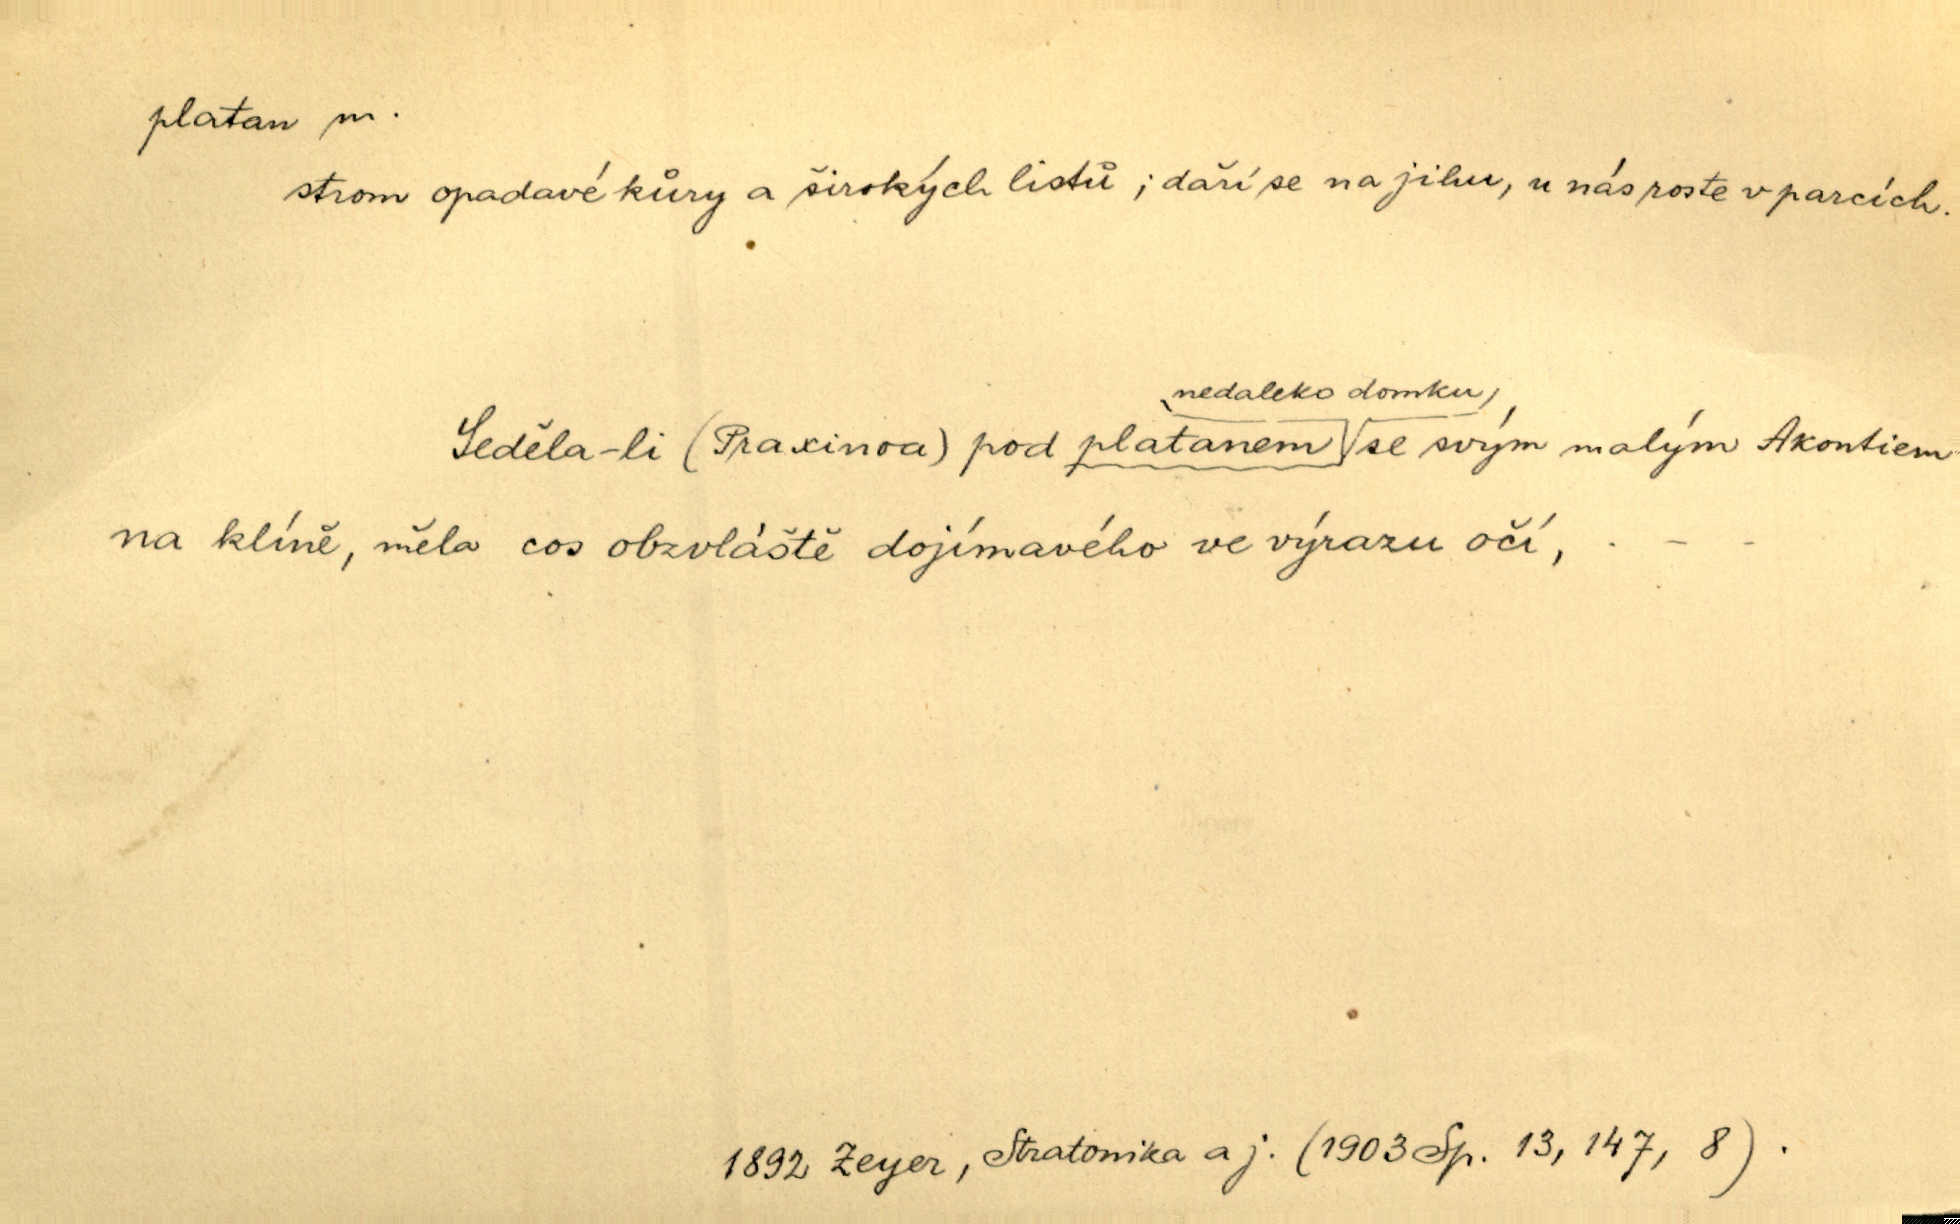 platan m.
strom opadavé kůry a širokých listů; daří se na jihu, u nás roste v parcích.
nedaleko domku,
Seděla-li (Praxinoa) pod platanem se svým malým Akontiem
na klíně, měla cos obzvláště dojímavého ve výrazu očí, . - -
1892 Zeyer, Stratonika a j. (1903 Sp. 13, 147, 8).